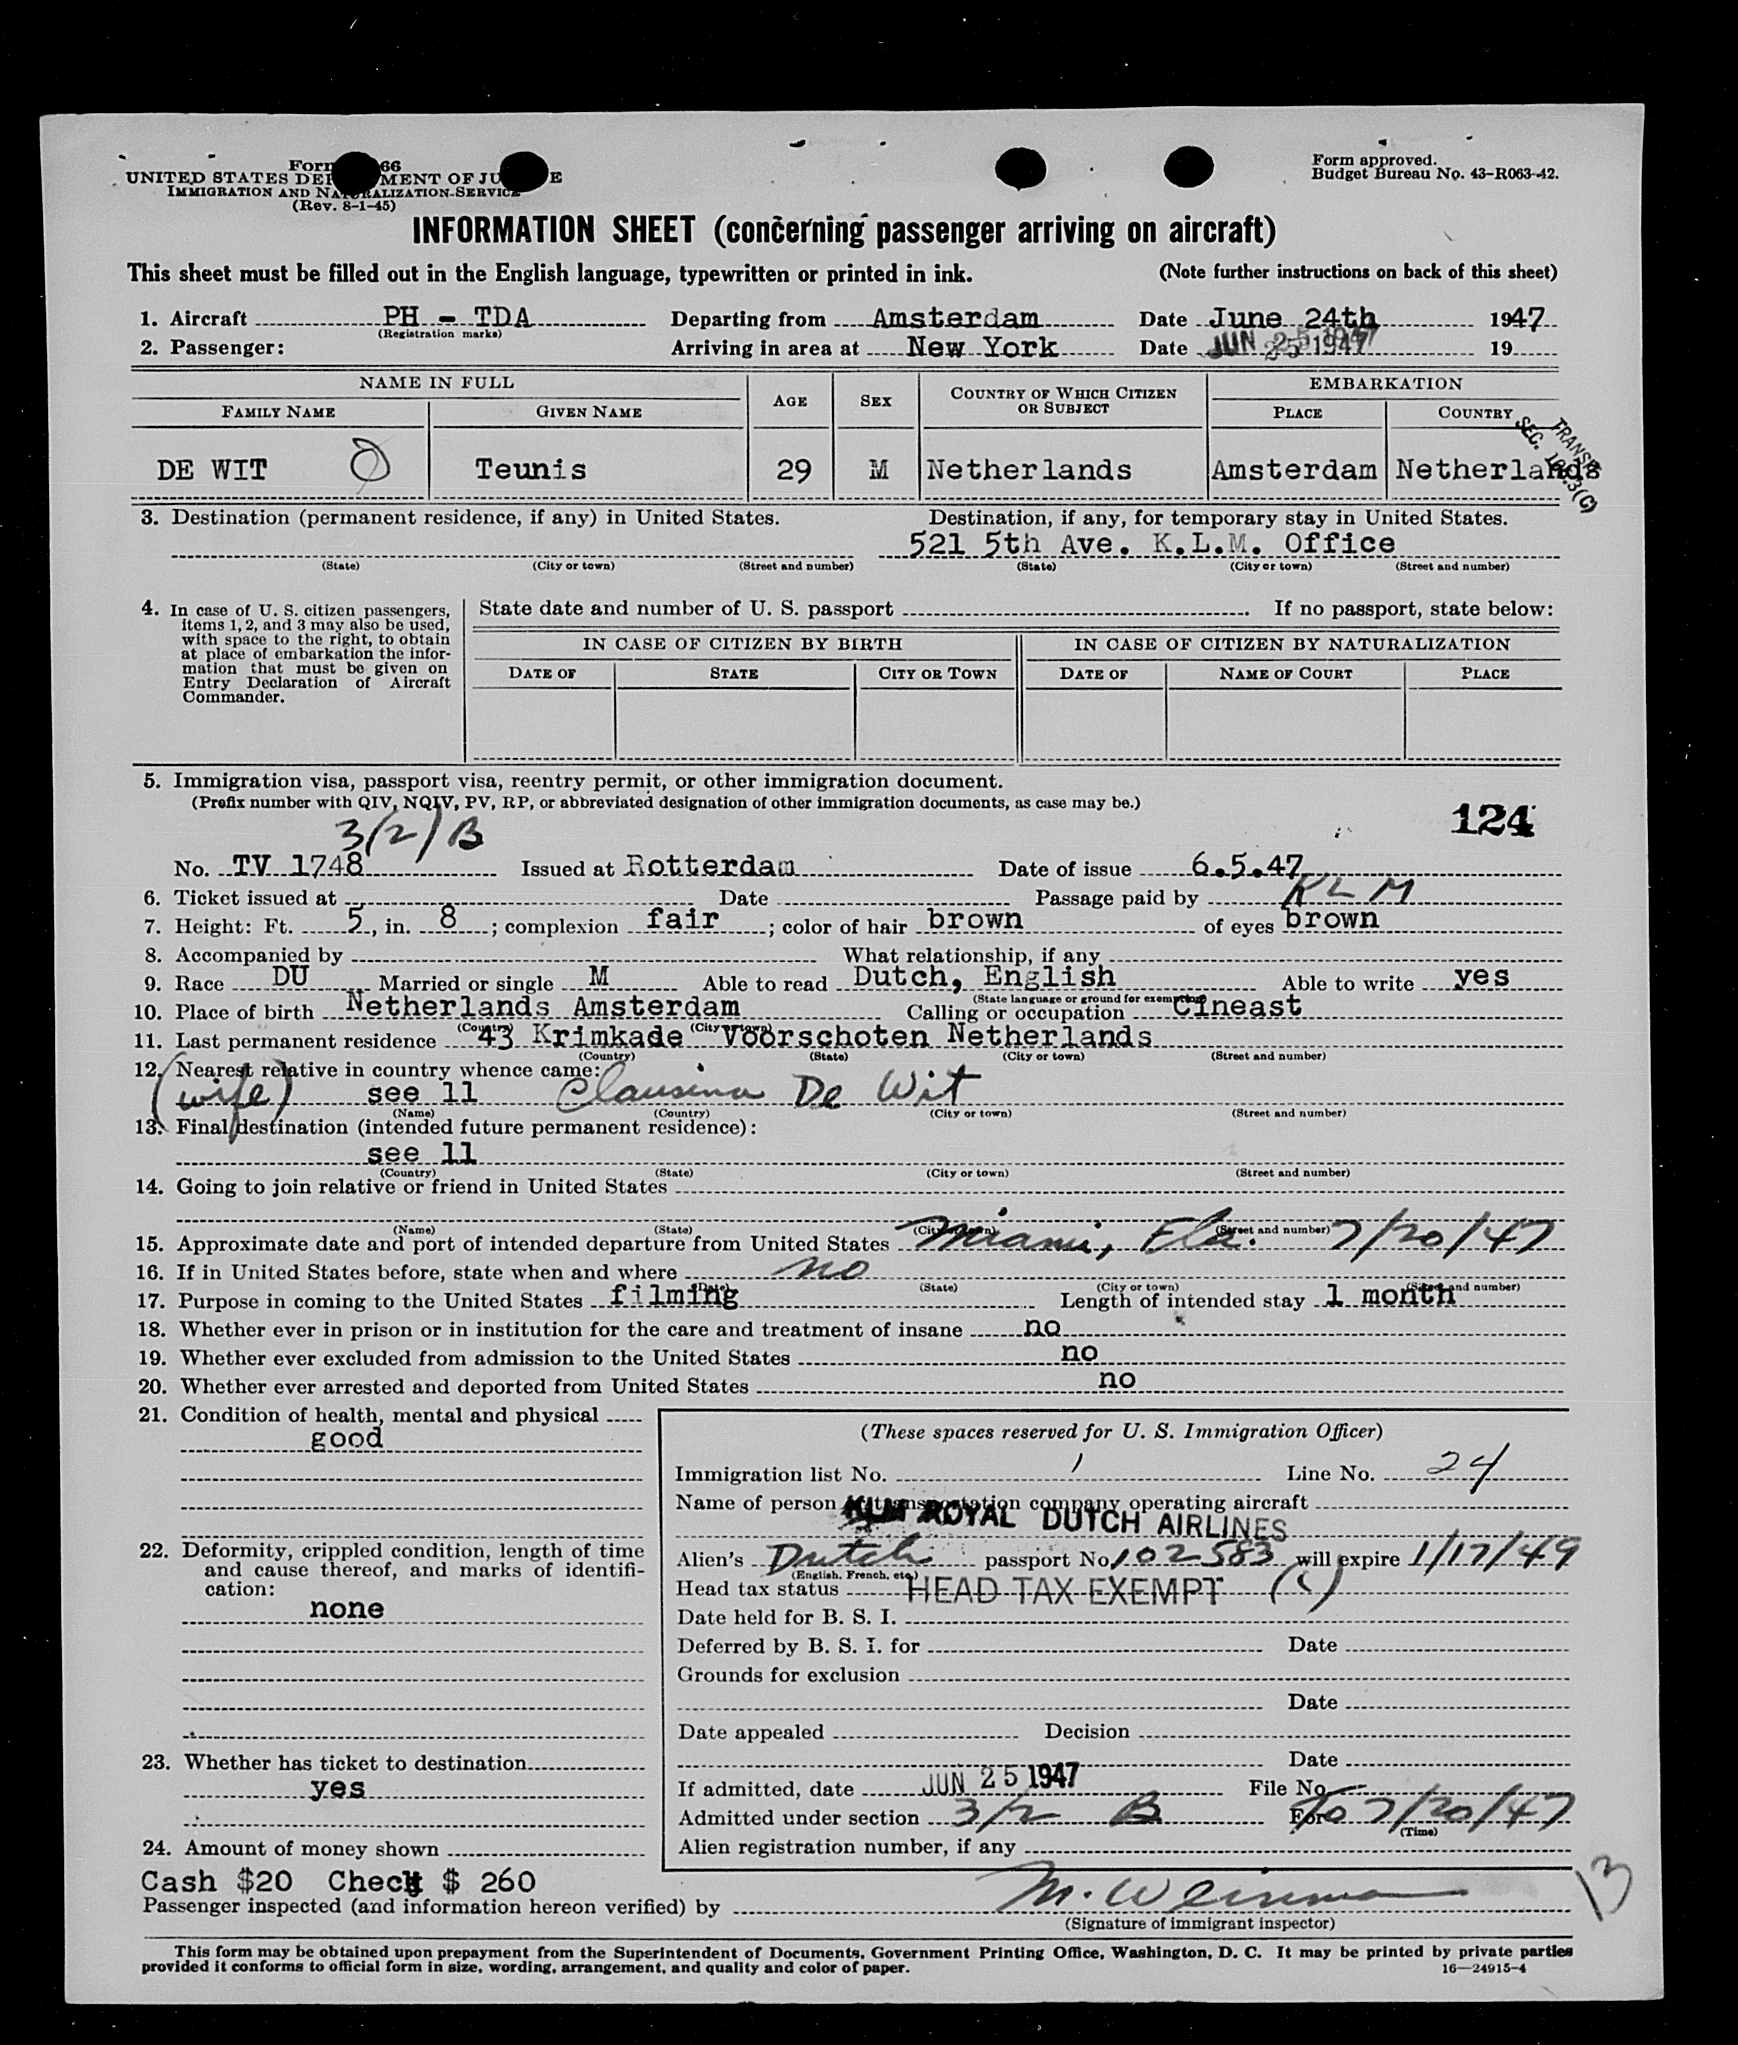 Form 66
UNITED STATES DEPARTMENT OF JUSTICE
IMMIGRATION AND NATURALIZATION SERVICE
(Rev. 8-1-45)
Form approved.
Budget Bureau No. 43-R063-42.
INFORMATION SHEET (concerning passenger arriving on aircraft)
This sheet must be filled out in the English language, typewritten or printed in ink. (Note further instructions on back of this sheet)
1. Aircraft PH - TDA Departing from Amsterdam Date June 24th 1947
(Registration marks)
2. Passenger: Arriving in area at New York Date JUN 25 1947 19
NAME IN FULL AGE SEX COUNTRY OF WHICH CITIZEN OR SUBJECT EMBARKATION
FAMILY NAME GIVEN NAME PLACE COUNTRY
TRANSIT
SEC. (C)
DE WIT Teunis 29 M Netherlands Amsterdam Netherlands
3. Destination (permanent residence, if any) in United States. Destination, if any, for temporary stay in United States.
521 5th Ave. K.L.M. Office
(State) (City or town) (Street and number) (State) (City or town) (Street and number)
4. In case of U. S. citizen passengers, items 1, 2, and 3 may also be used, with space to the right, to obtain at place of embarkation the information that must be given on Entry Declaration of Aircraft Commander.
State date and number of U. S. passport . If no passport, state below:
IN CASE OF CITIZEN BY BIRTH IN CASE OF CITIZEN BY NATURALIZATION
DATE OF STATE CITY OR TOWN DATE OF NAME OF COURT PLACE
5. Immigration visa, passport visa, reentry permit, or other immigration document.
(Prefix number with QIV, NQIV, PV, RP, or abbreviated designation of other immigration documents, as case may be.)
3/2/B 124
No. TV 1748 Issued at Rotterdam Date of issue 6.5.47
6. Ticket issued at Date Passage paid by KLM
7. Height: Ft. 5, in. 8; complexion fair; color of hair brown of eyes brown
8. Accompanied by What relationship, if any
9. Race DU Married or single M Able to read Dutch, English Able to write yes
(State language or ground for exemption)
10. Place of birth Netherlands Amsterdam Calling or occupation Cineast
(Country) (City or town)
11. Last permanent residence 43 Krimkade Voorschoten Netherlands
(Country) (State) (City or town) (Street and number)
12. Nearest relative in country whence came:
(wife) see 11 Clausina De Wit
(Name) (Country) (City or town) (Street and number)
13. Final destination (intended future permanent residence):
see 11
(Country) (State) (City or town) (Street and number)
14. Going to join relative or friend in United States
(Name) (State) (City or town) (Street and number)
15. Approximate date and port of intended departure from United States Miami, Fla. 7/20/47
16. If in United States before, state when and where no
(Date) (State) (City or town) (Street and number)
17. Purpose in coming to the United States filming Length of intended stay 1 month
18. Whether ever in prison or in institution for the care and treatment of insane no
19. Whether ever excluded from admission to the United States no
20. Whether ever arrested and deported from United States no
21. Condition of health, mental and physical
good
22. Deformity, crippled condition, length of time and cause thereof, and marks of identification:
none
23. Whether has ticket to destination
yes
24. Amount of money shown
Cash $20 Check $ 260
(These spaces reserved for U. S. Immigration Officer)
Immigration list No. 1 Line No. 24
Name of person or transportation company operating aircraft
KLM ROYAL DUTCH AIRLINES
Alien's Dutch passport No. 102583 will expire 1/17/49
(English, French, etc.)
Head tax status HEAD TAX EXEMPT
Date held for B. S. I.
Deferred by B. S. I. for Date
Grounds for exclusion
Date
Date appealed Decision
Date
If admitted, date JUN 25 1947 File No.
Admitted under section 3/2 B For to 7/20/47
(Time)
Alien registration number, if any
13
Passenger inspected (and information hereon verified) by M. Weinman
(Signature of immigrant inspector)
This form may be obtained upon prepayment from the Superintendent of Documents, Government Printing Office, Washington, D. C. It may be printed by private parties
provided it conforms to official form in size, wording, arrangement, and quality and color of paper. 16—24915-4